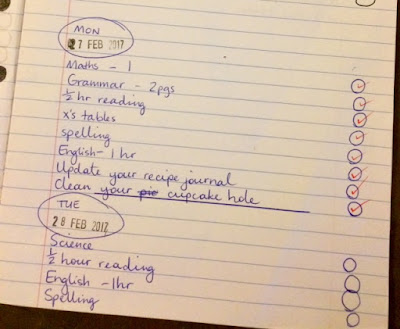 MON
27 FEB 2017
Maths - 1
Grammar - 2pgs
½ hr reading
x's tables
spelling
English - 1 hr
Update your recipe journal
Clean your pie cupcake hole
TUE
28 FEB 2017
Science
½ hour reading
English - 1hr
Spelling